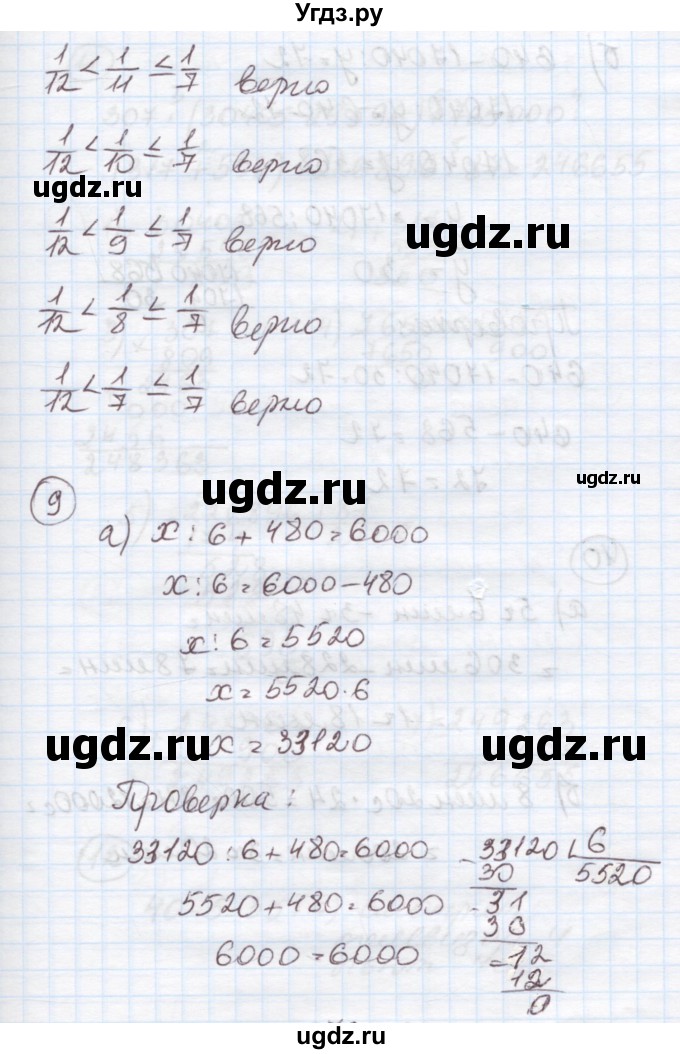 Угдз.ру
1/12 < 1/11 ≤ 1/7 верно
1/12 < 1/10 ≤ 1/7 верно
ugdz.ru
1/12 < 1/9 ≤ 1/7 верно
ugdz.ru
1/12 < 1/8 ≤ 1/7 верно
1/12 < 1/7 ≤ 1/7 верно
9
ugdz.ru
а) x : 6 + 480 = 6000
x : 6 = 6000 - 480
x : 6 = 5520
x = 5520 · 6
x = 33120
ugdz.ru
ugdz.ru
Проверка:
33120 : 6 + 480 = 6000
5520 + 480 = 6000
6000 = 6000
- 33120 | 6
30 5520
- 31
30
- 12
12
0
ugdz.ru
ugdz.ru
ugdz.ru